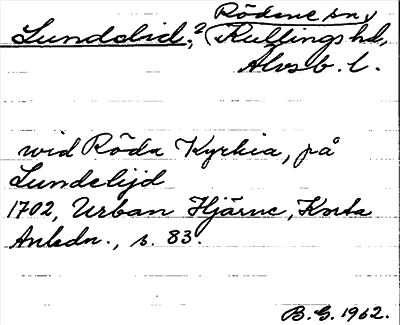 Rödene sn,
Lundelid,² (Kullings hd,
Älvsb. l.
wid Röda Kyrkia, på
Lundelijd
1702, Urban Hjärne, Korta
Anledn., s. 83.
B. G. 1962.